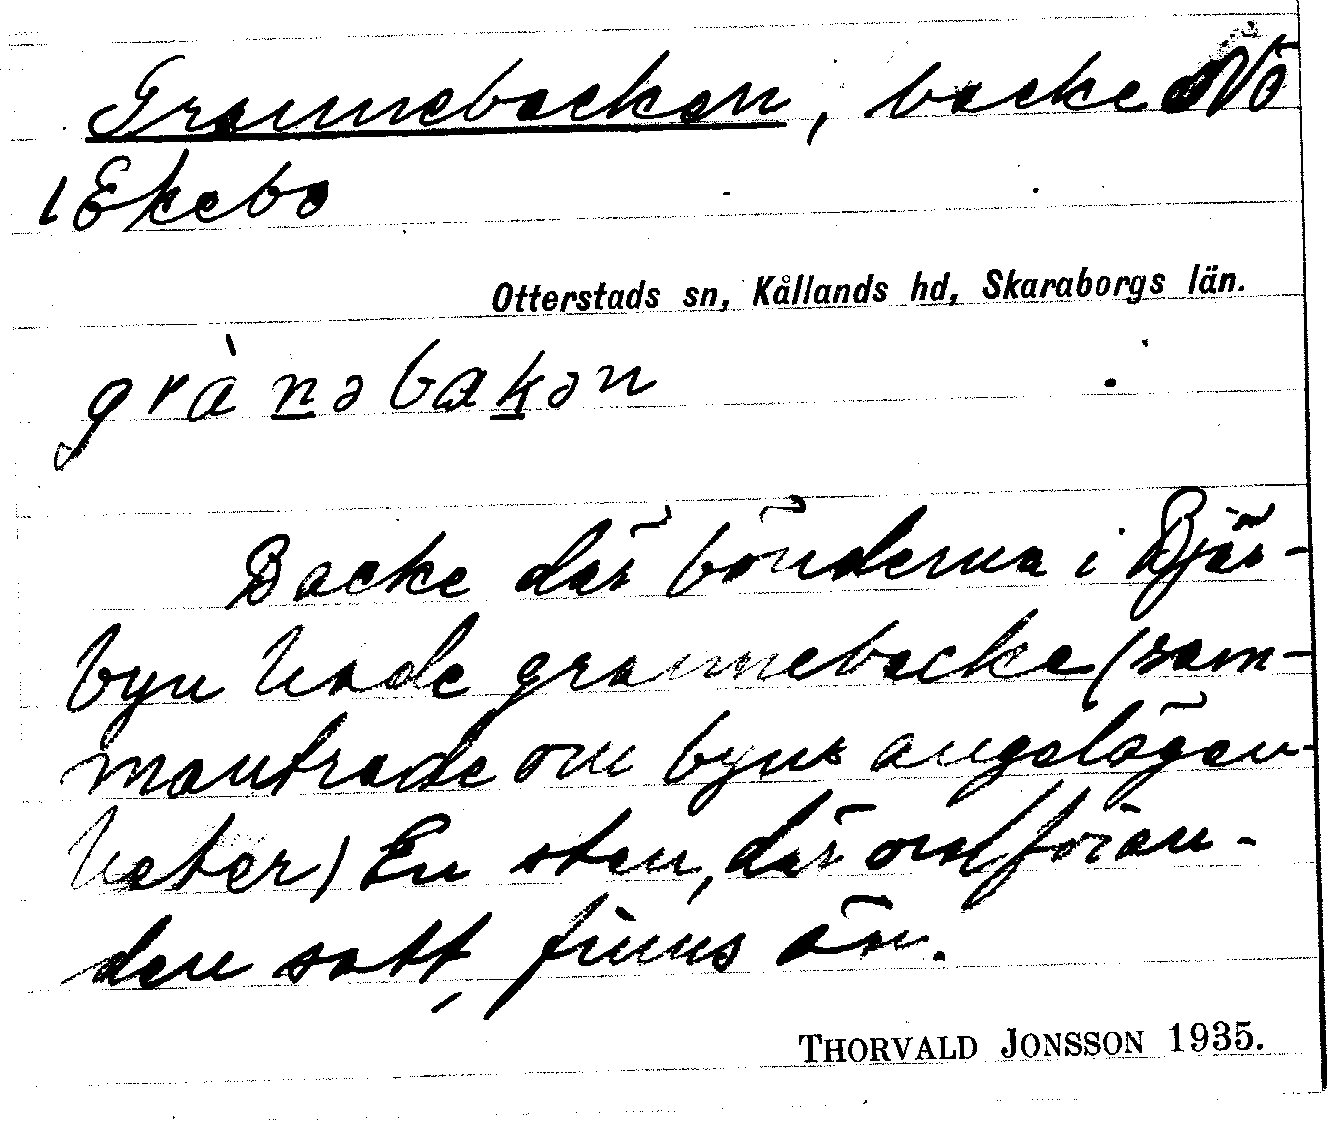 Grannebacken, backe NÖ
i Ekebo
Otterstads sn, Kållands hd, Skaraborgs län.
grànəbakən
Backe där bönderna i Bjär-
byn hade grannebacke (sam-
manträde om byns angelägen-
heter) En sten, där ordföran-
den satt, finns än.
THORVALD JONSSON 1935.